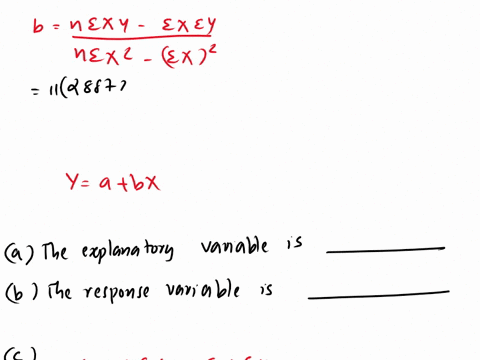 b = nΣXY - ΣXΣY
nΣX² - (ΣX)²
= 11(2887
Y = a + bX
(a) The explanatory variable is ________
(b) The response variable is ________
(c)